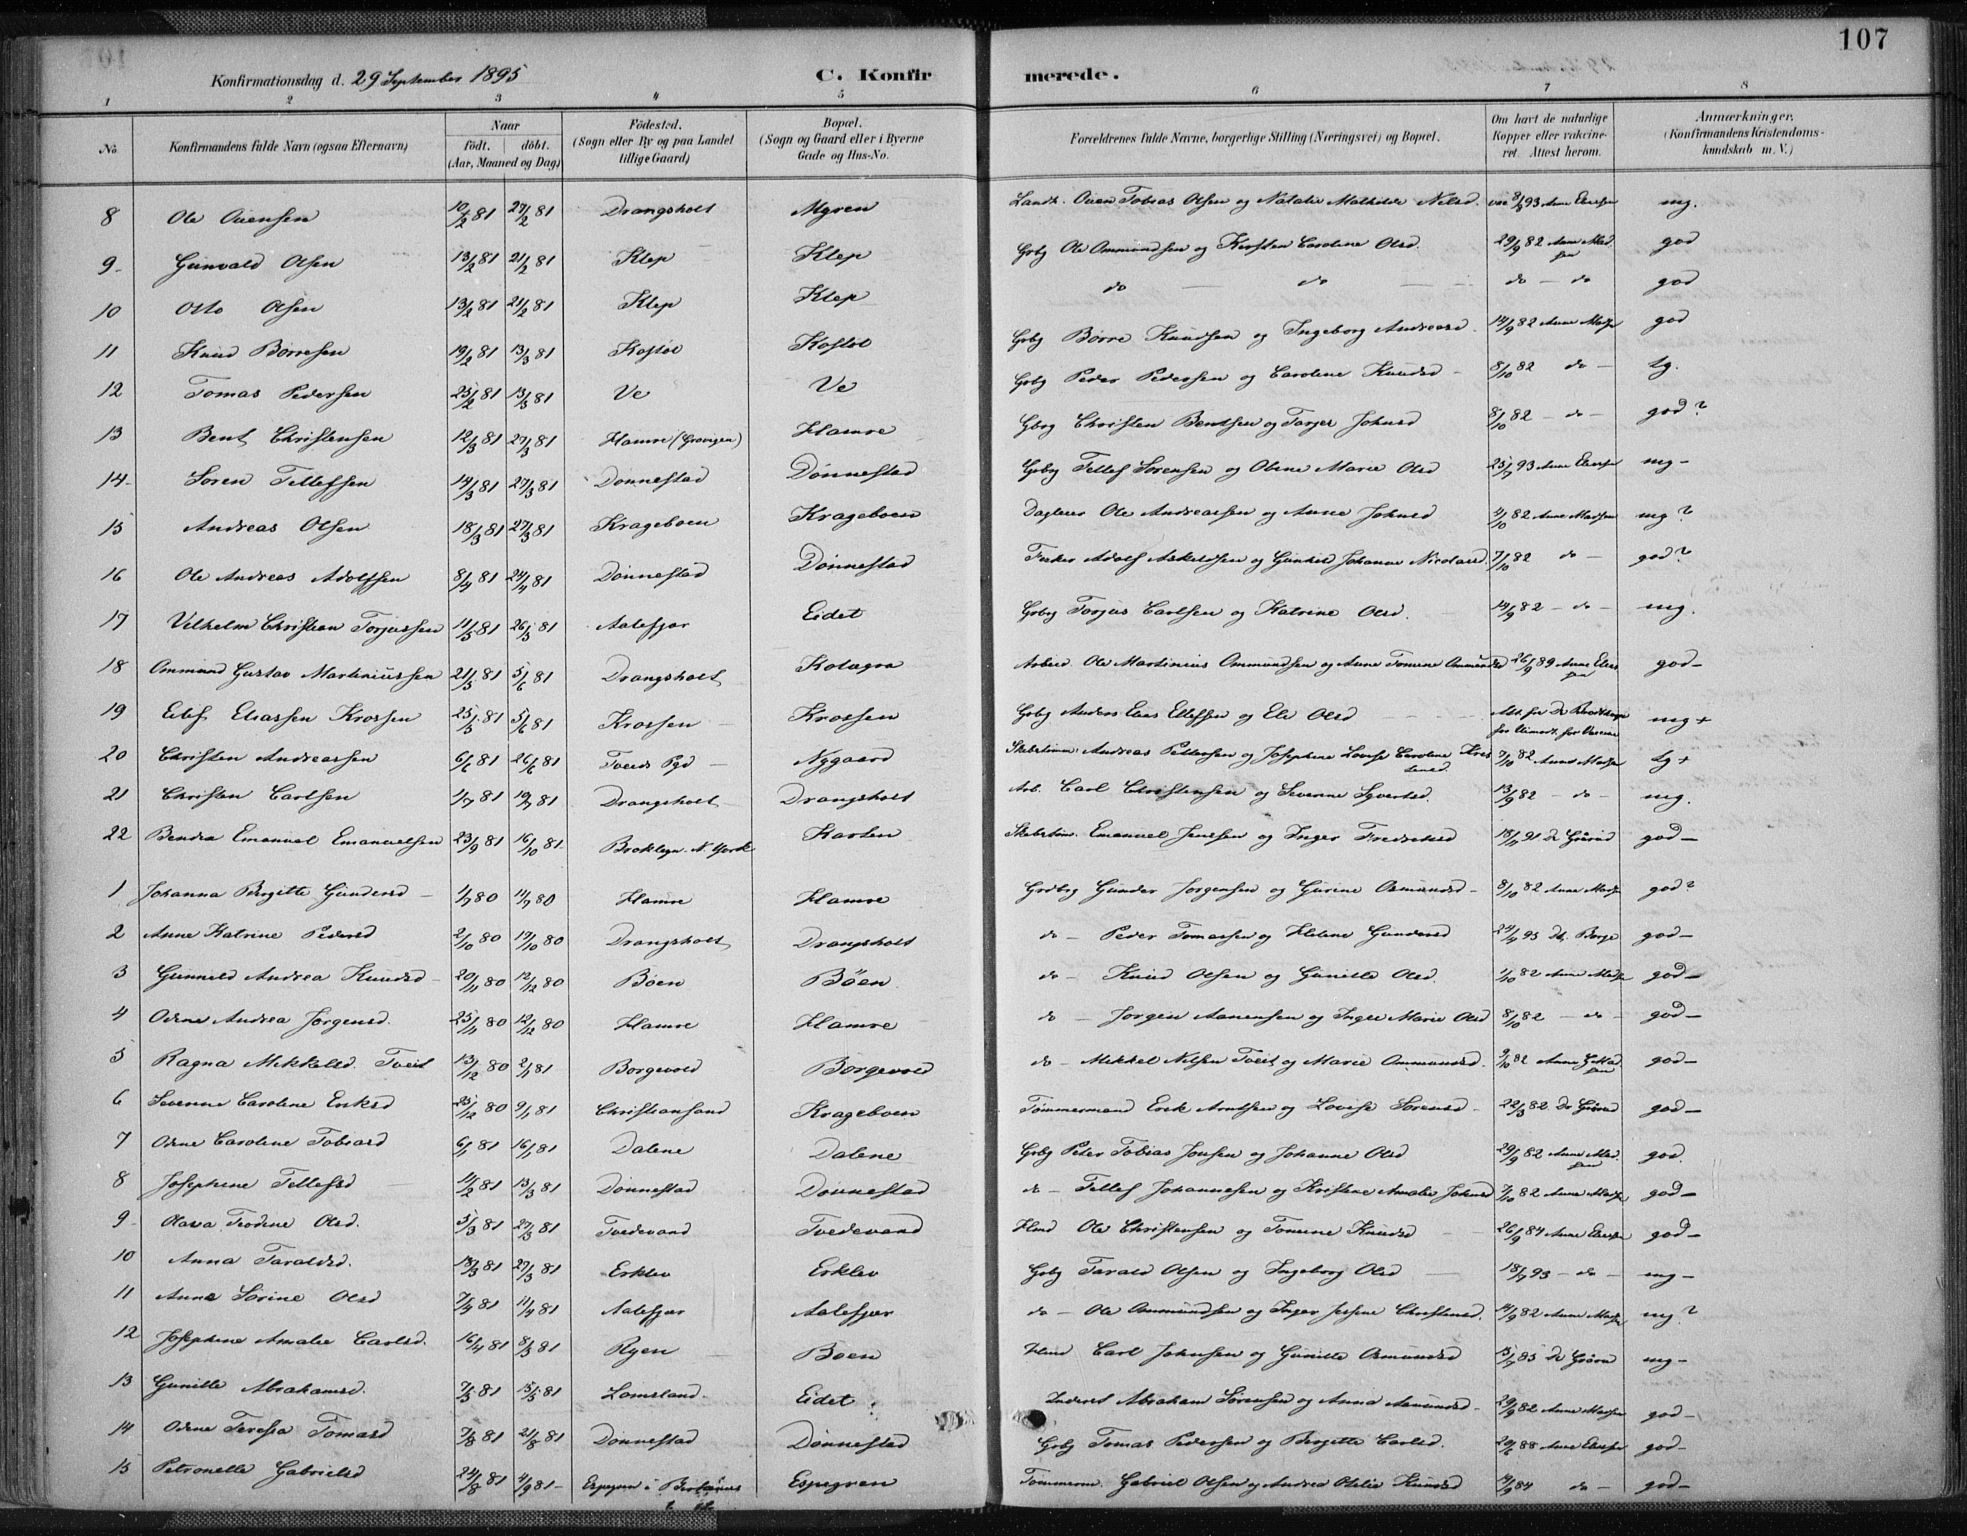 107
Konfirmationsdag d. 29 September 1895 C. Konfir merede.
1 2 3 4 5 6 7 8
No Konfirmandens fulde Navn (ogsaa Efternavn) Naar født. døbt. (Aar, Maaned og Dag) Fødested. (Sogn eller By og paa Landet tillige Gaard) Bopæl. (Sogn og Gaard eller i Byerne Gade og Hus-No. Forældrenes fulde Navne, borgerlige Stilling (Næringsvei) og Bopæl. Om havt de naturlige Kopper eller vakcineret. Attest herom. Anmærkninger. (Konfirmandens Kristendomskundskab m. V.)
8 Ole Ouensen 10/2 81 27/2 81 Drangsholt Mgren Ouen Tobias Olsen og Natalie Mathilde Nelsd. 93 mg.
9 Gunvald Olsen 13/2 81 21/2 81 Klep Klep Gbrg Ole Ommundsen og Kirsten Caroline Olsd. 29/9 82 Anne Madsen god
10 Otto Olsen 13/2 81 21/2 81 Klep Klep do do do do god
11 Knud Børresen 19/2 81 13/3 81 Kostøl Kostøl Gbrg Børre Knudsen og Ingeborg Andreasd. 14/9 82 Anne Madsen god
12 Tomas Pedersen 25/2 81 13/3 81 Ve Ve Gbrg Peder Pedersen og Caroline Knudsd 8/10 82 do tg.
13 Bent Christensen 12/3 81 27/3 81 Hamre (Grovigen) Hamre Gbrg Christen Bentsen og Torjer Johnsd 8/10 82 do god?
14 Søren Tellefsen 14/3 81 27/3 81 Dønnestad Dønnestad Gbrg Tellef Sørensen og Oline Marie Olsd 25/7 93 mg
15 Andreas Olsen 18/3 81 27/3 81 Krageboen Krageboen Dagleier Ole Andreassen og Anne Johnsd 82 Anne Madsen mg?
16 Ole Andreas Adolfsen 8/4 81 24/4 81 Dønnestad Dønnestad Fisker Adolf Askeldsen og Gunhild Johanne Nicolaisd. 7/10 82 do god?
17 Vilhelm Christian Torjussen 11/5 81 26/5 81 Aalefjær Eidet Gbrg Torjus Carlsen og Katrine Olsd. 14/9 82 do mg.
18 Ommund Gustav Martiniussen 21/5 81 5/6 81 Drangsholt Kolagra Arbeid. Ole Martinius Ommundsen og Anne Tomine Ommundsd 26/9 89 god
19 Ellef Eliassen Krossen 25/5 81 5/6 81 Krossen Krossen Gbrg Anders Elias Ellefsen og Eli Olsd Att. fra mg+
20 Christen Andreassen 6/6 81 26/6 81 Tveds Pgd Nygaard Skibstømm. Andreas Pettersen og Josephine Lovise Caroline Kristensd. 7/10 82 Anne Madsen tg+
21 Christen Carlsen 1/7 81 19/7 81 Drangsholt Drangsholt Arb. Carl Christensen og Severine Syvertsd. 13/9 82 do mg.
22 Bendix Emanuel Emanuelsen 23/9 81 16/10 81 Broklyn. N. York Karlen Skibstøm. Emanuel Jensen og Inger Fredriksd 91 god
1 Johanna Birgitte Gundersd 1/7 80 11/7 80 Hamre Hamre Grdbrg Gunder Jørgensen og Gurine Osmundsd 8/10 82 Anne Madsen god?
2 Anne Katrine Pedersd 2/10 80 17/10 80 Drangsholt Drangsholt do Peder Tomassen og Helene Gundersd 24/4 95 god
3 Gunneld Andrea Knudsd 20/11 80 12/12 80 Bøen Bøen do Knud Olsen og Gunille Olsd. 1/10 82 Anne Madsen god
4 Odine Andrea Jørgensd. 25/11 80 12/12 80 Hamre Hamre do Jørgen Aanensen og Inger Marie Olsd 8/10 82 do god
5 Ragna Mikkelsd. Tveit 13/12 80 2/1 81 Borgevold Borgevold do Mikkel Nilsen Tveit og Marie Ommundsd. 9/10 82 god
6 Severine Caroline Eriksd 25/12 80 9/1 81 Christiansand Krageboen Tømmermand Erik Arntsen og Lovise Sørensd 22/3 82 god
7 Odine Caroline Tobiasd 6/1 81 16/1 81 Dalene Dalene Gbrg Peter Tobias Jensen og Johanne Olsd 29/9 82 Anne Madsen god.
8 Josephine Tellefsd 11/2 81 13/3 81 Dønnestad Dønnestad do Tellef Johannesen og Kristine Amalie Johnsd 7/10 82 Anne Madsen god
9 Olava Teodine Olsd. 5/3 81 27/3 81 Tvedevand Tvedevand Hmd Ole Christensen og Tomine Knudsd 26/9 84 god
10 Anna Taraldsd. 13/3 81 27/3 81 Erklev Erklev Gbrg Tarald Olsen og Ingeborg Olsd 18/7 93 do mg
11 Anne Sørine Olsd 7/4 81 11/4 81 Aalefjær Aalefjær do Ole Ommundsen og Inger Christensd. 14/9 82 Anne Madsen mg?
12 Josephine Amalie Carlsd. 16/4 81 8/5 81 Ryen Boen Carl Johnsen og Gunille Osmundsd 85 mg
13 Gunille Abrahamsd. 7/5 81 15/5 81 Lomsland Eidet Inderst Abraham Sørensen og Anna Aanundsd 29/9 82 Anne Madsen god
14 Odine Teresia Tomasd 7/8 81 21/8 81 Dønnestad Dønnestad Gbrg Tomas Pedersen og Birgitte Carlsd. 88 god
15 Petronelle Gabrielsd 24/8 81 4/9 81 Espegren Tømmerm. Gabriel Olsen og Andrea Otilie Knudsd 84 do god